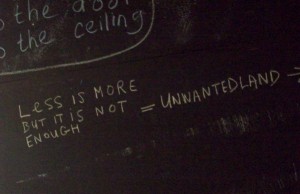 the door
to the ceiling
LESS IS MORE
BUT IT IS NOT = UNWANTEDLAND →
ENOUGH